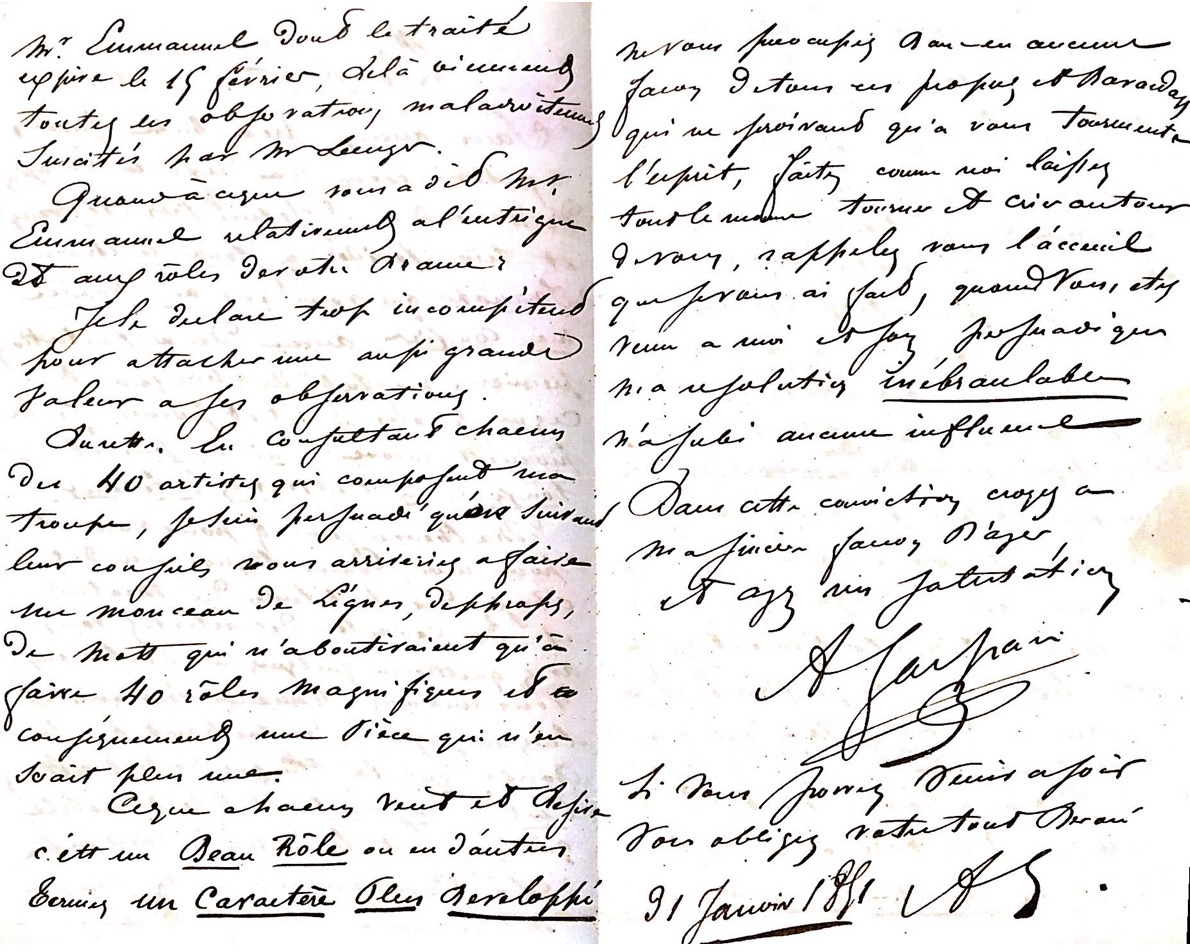 Mr Emmanuel dont le traité
expire le 15 février, delà viennent
toutes ces observations maladroitement
suscités par Mr
Quand à ceque vous a dit Mr.
Emmanuel relativement a l'intrigue
et aux rôles de votre Drame:
Je le declare trop incompétend
pour attacher une aussi grande
valeur a ses observations.
En consultant chacun
des 40 artistes qui composent ma
troupe, je suis persuadé qu'en suivant
leur conseils vous arriveriez a faire
un monceau de Lignes, de phrases,
de Mots qui n'aboutiraient qu'à
faire 40 rôles magnifiques et
conséquement une Pièce qui n'en
serait plus une.
Ceque chacun veut et desire
c'ett un Beau Rôle ou en d'autres
termes un Caractère Plus Developpé
ne vous preocupez Donc en aucune
facon de tous ces propos et Bavardages
qui ne serviraient qu'a vous Tourmenter
l'esprit, faites comme moi laissez
tout le monde tourner et crier autour
de vous, rappelez vous l'àcceuil
que je vous ai fait, quand Vous, etes
venu a moi et soyez persuadé que
ma resolution inébranlable
n'a subi aucune influence
Dans cette conviction croyez a
ma sincère facon D'agir,
et agrez mes salutations
A Gaspari
Si Vous pouvez Venir ce soir
Vous obligez votre tout Devoué
31 Janvier 1851 AG.